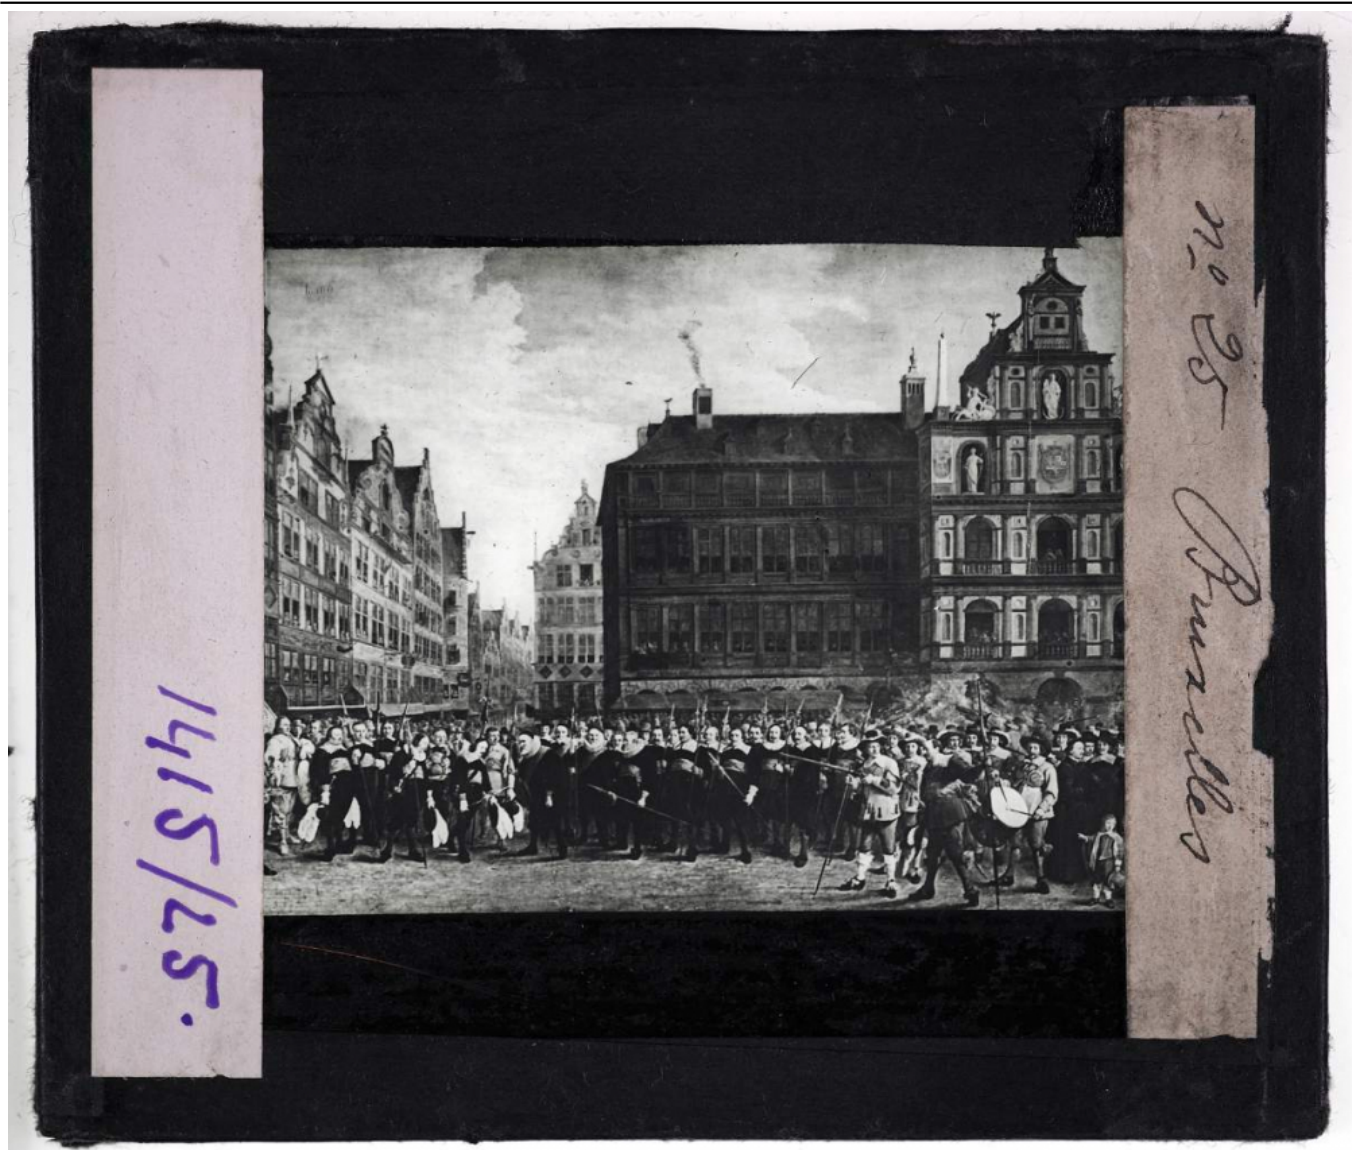 1415/25.
n.º 25 Bruxelles